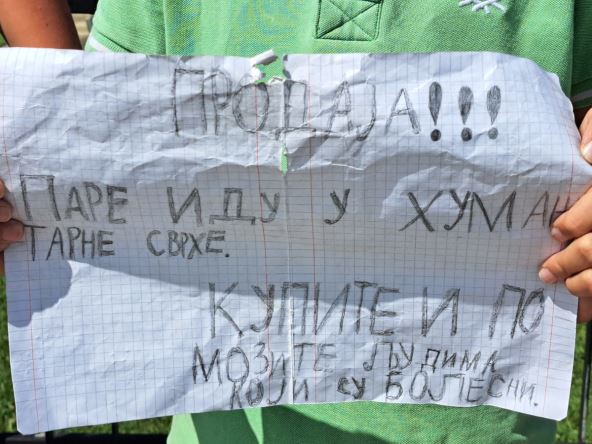 ПРОДАЈА!!!
ПАРЕ ИДУ У ХУМАН
ТАРНЕ СВРХЕ.
КУПИТЕ И ПО
МОЗИТЕ ЉУДИМА
КОЈИ СУ БОЛЕСНИ.